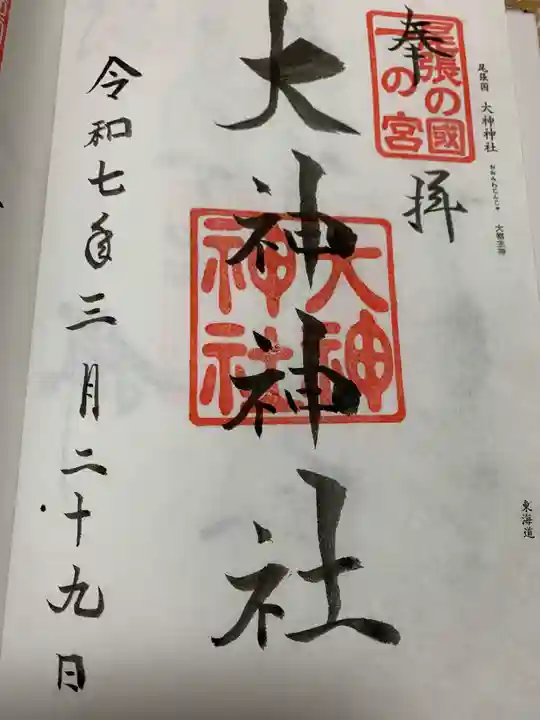 尾張国 大神神社
おおみわじんじゃ
大物主神
東海道
奉拝
尾張の國
一の宮
大神神社
大神
神社
令和七年三月二十九日